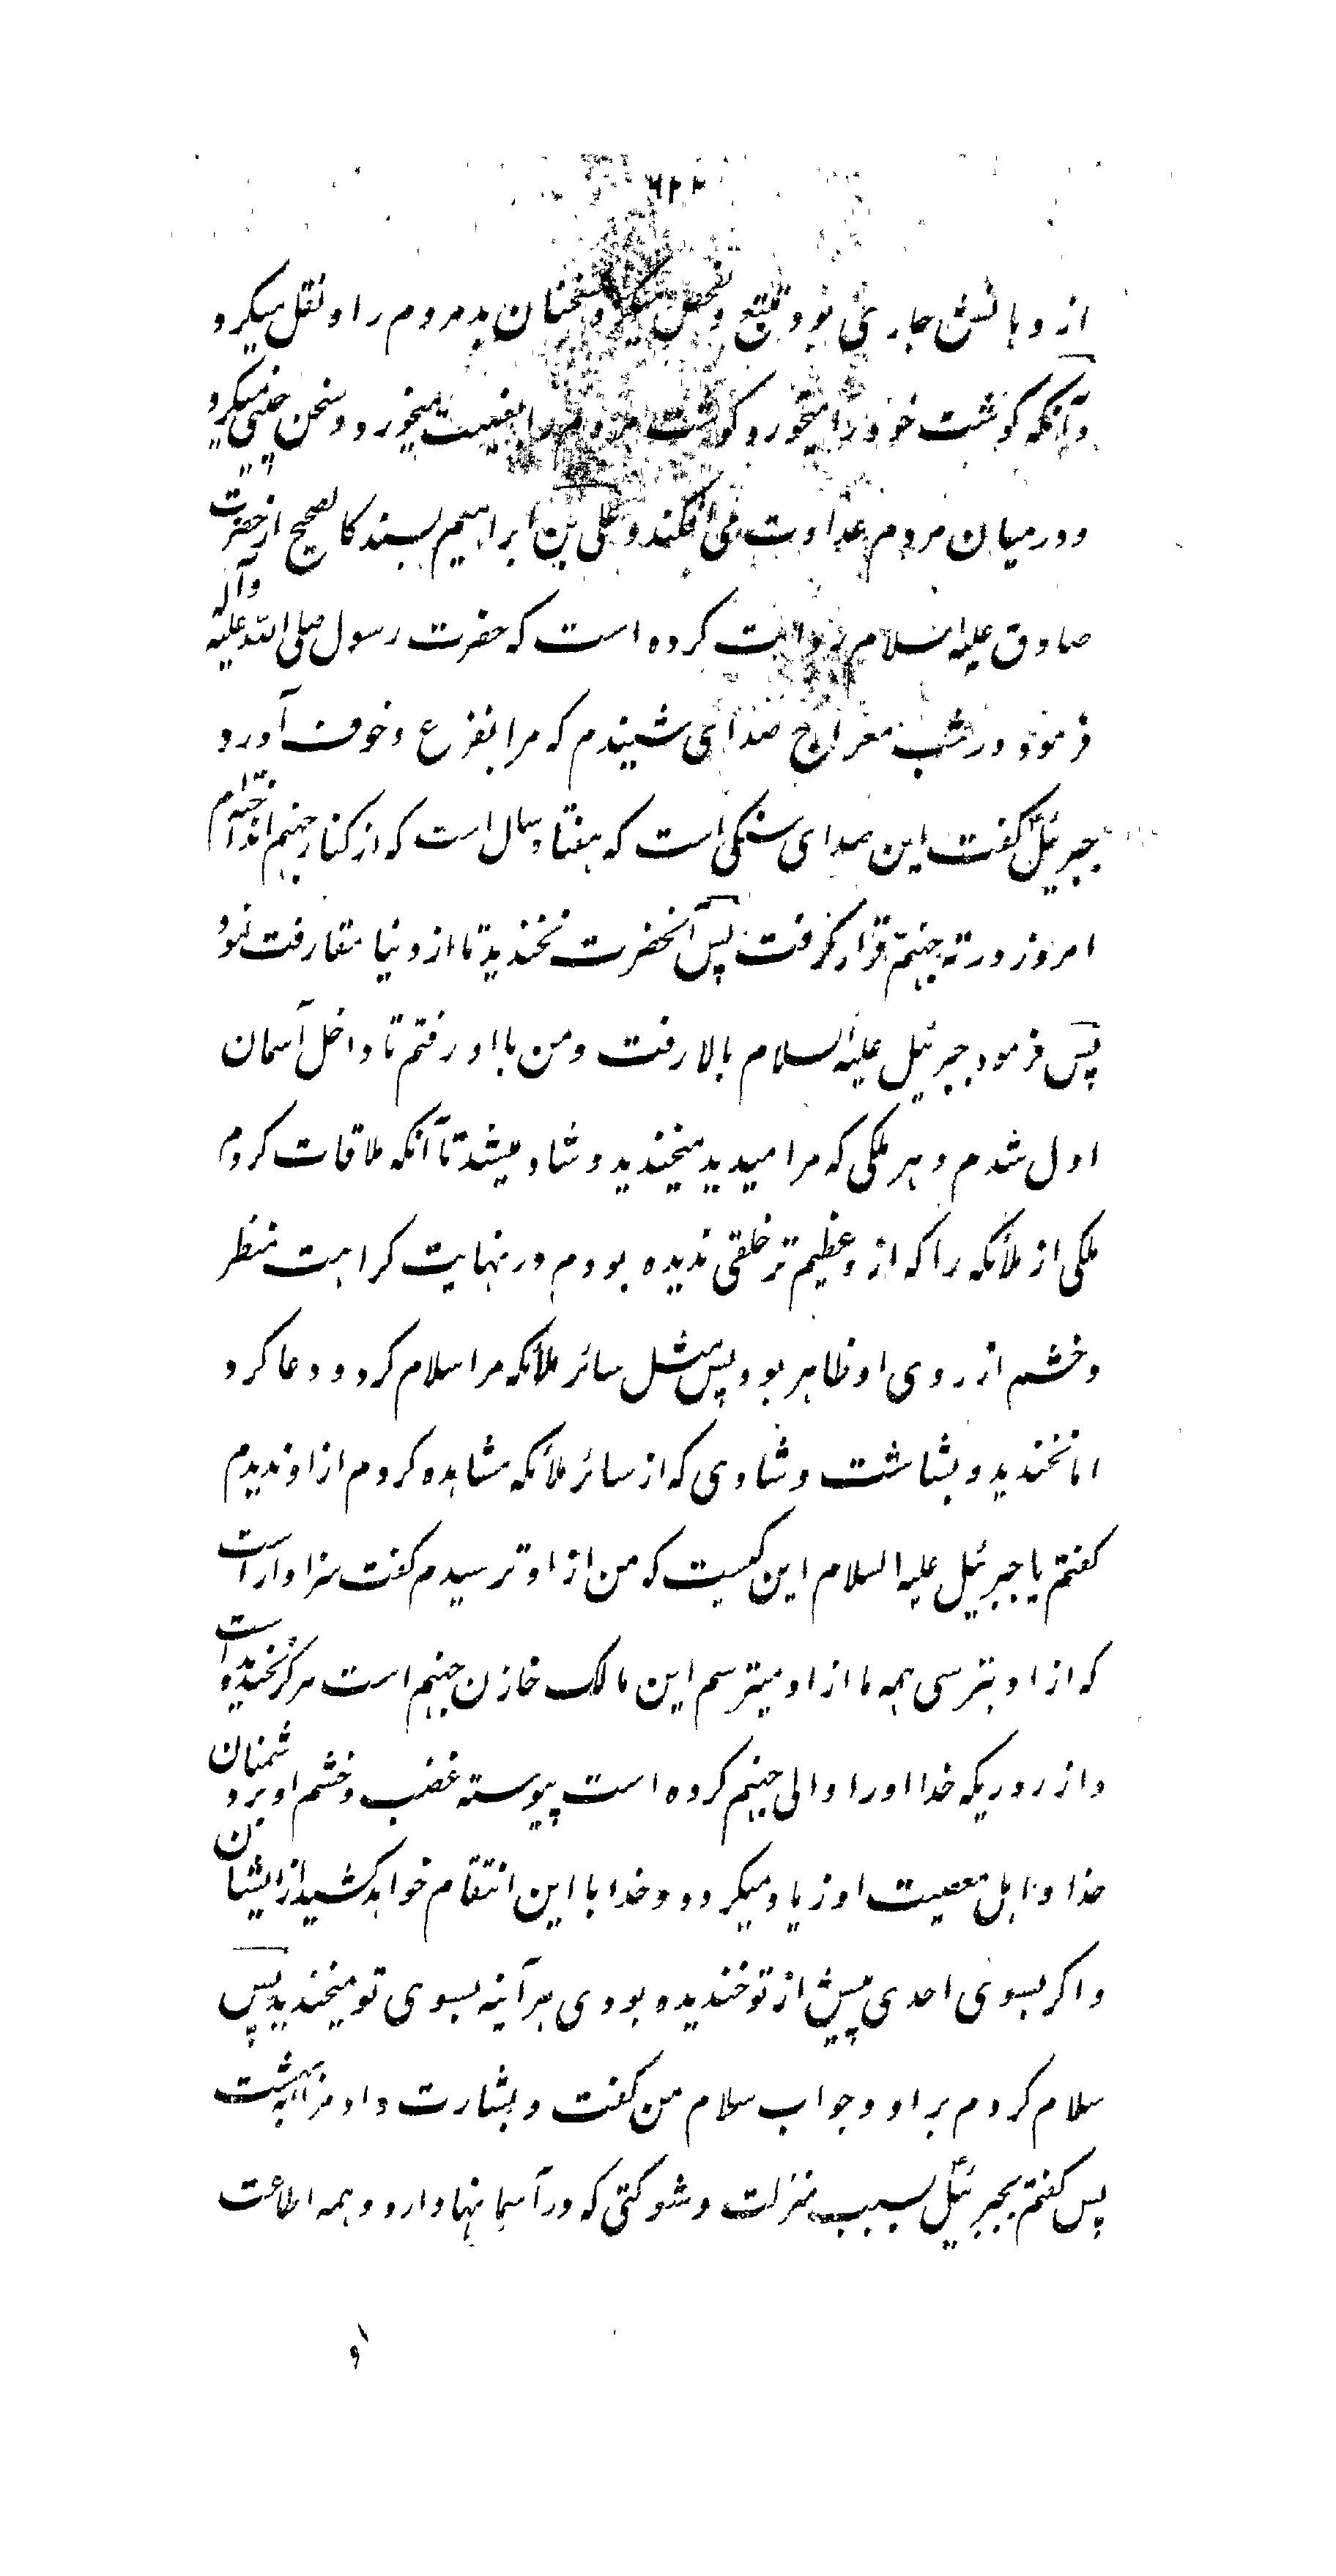 ۶۲۲
از دهانش جاری بود و تتبع و تفحص میکرد و سخنان بد مردم را و نقل میکرد
و آنکه گوشت خود را میخورد گوشت مردم را بغیبت میخورد و سخن چینی میکرد
و در میان مردم عداوت می افکند و علی بن ابراهیم بسند کالصحیح از حضرت
صادق علیه السلام روایت کرده است که حضرت رسول صلی الله علیه وآله
فرمود در شب معراج صدای شنیدم که مرا بفزع و خوف آورد
جبرئیل گفت این صدای سنگی است که هفتاد سال است که از کنار جهنم انداخته ام
امروز در ته جهنم قرار گرفت پس آنحضرت نخندید تا از دنیا مفارقت نمود
پس فرمود جبرئیل علیه السلام بالا رفت و من با او رفتم تا داخل آسمان
اول شدم و هر ملکی که مرا میدید میخندید و شاد میشد تا آنکه ملاقات کردم
ملکی از ملائکه را که از و عظیم تر خلقی ندیده بودم در نهایت کراهت منظر
و خشم از روی او ظاهر بود پس مثل سائر ملائکه مرا سلام کرد و دعا کرد
اما نخندید و بشاشت و شادی که از سائر ملائکه مشاهده کردم از او ندیدم
گفتم یا جبرئیل علیه السلام این کیست که من از او ترسیدم گفت سزاوار است
که از او بترسی همه ما از او میترسم این مالک خازن جهنم است هرگز نخندیده است
و از روزیکه خدا او را والی جهنم کرده است پیوسته غضب و خشم او بر دشمنان
خدا و اهل معصیت او زیاد میگردد و خدا با این انتقام خواهد کشید از ایشان
و اگر بسوی احدی پیش از تو خندیده بودی هر آینه بسوی تو میخندید پس
سلام کردم بر او و جواب سلام من گفت و بشارت داد مرا ببهشت
پس گفتم بجبرئیل بسبب منزلت و شوکتی که در آسمانها دارد و همه اطاعت
او